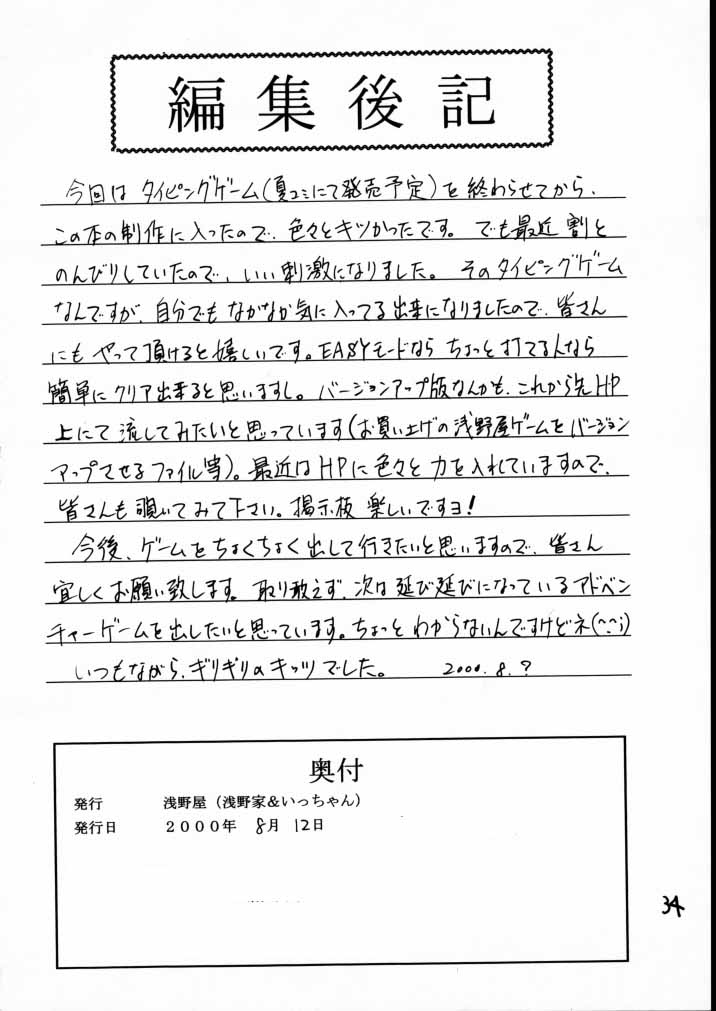 編集後記
今回は タイピングゲーム(夏コミにて発売予定)を 終わらせてから、
この本の制作に入ったので、色々とキツかったです。でも最近 割と
のんびりしていたので、いい刺激になりました。そのタイピングゲーム
なんですが、自分でも なかなか気に入ってる出来になりましたので、皆さん
にも やって頂けると嬉しいです。EASYモードなら ちょっと打てる人なら
簡単に クリア出来ると思いますし。バージョンアップ版なんかも、これから先HP
上にて 流してみたいと思っています(お買い上げの浅野屋ゲームをバージョン
アップさせるファイル等)。最近はHPに色々と 力を入れていますので、
皆さんも 覗いてみて下さい。掲示板 楽しいですョ!
今後、ゲームをちょくちょく出して行きたいと思いますので、皆さん
宜しくお願い致します。取り敢えず、次は延び延びになっているアドベン
チャーゲームを出したいと思っています。ちょっと わからないんですけどネ(^^;)
いつもながら、ギリギリのキッツでした。 2000.8.?
奥付
発行 浅野屋(浅野家&いっちゃん)
発行日 2000年 8月 12日
34